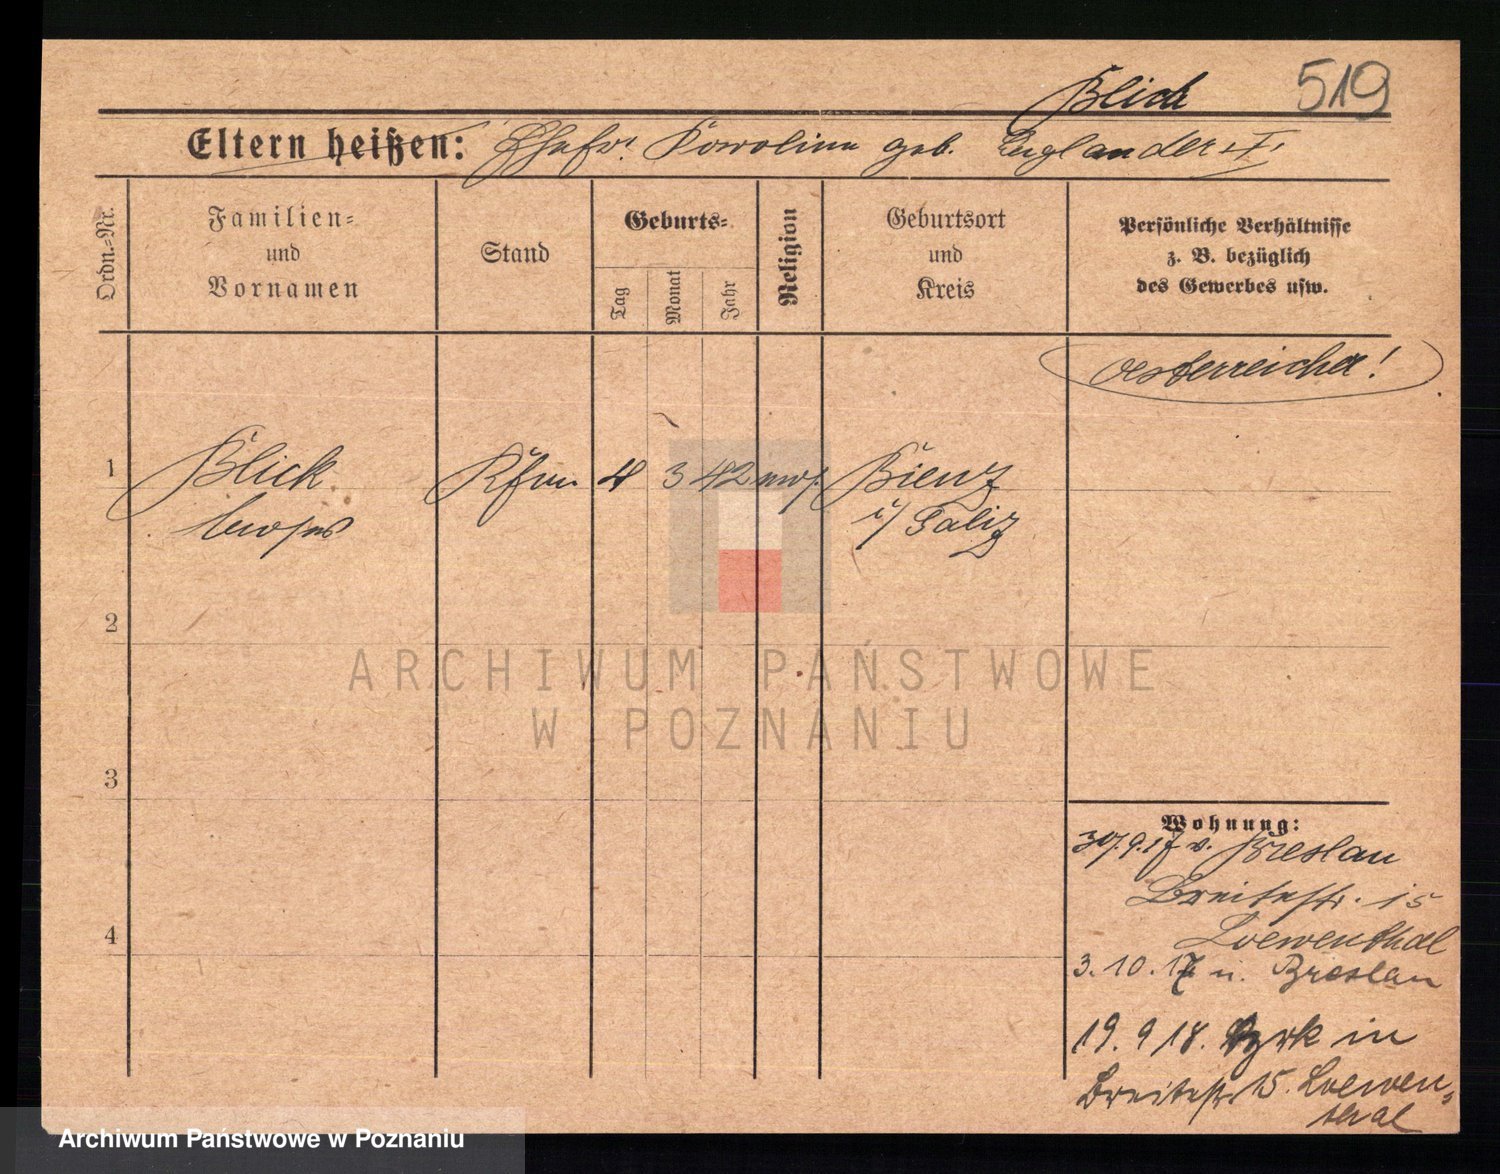 Blick
519
Eltern heißen: Ehefr. Karoline geb. Englander †.
Ordn.=Nr.
Familien=
und
Vornamen
Stand
Geburts=
Tag
Monat
Jahr
Religion
Geburtsort
und
Kreis
Persönliche Verhältnisse
z. B. bezüglich
des Gewerbes usw.
oesterreicher!
1
Blick
Kfm.
4
3
42
mos.
Bienz
i/ Galiz
2
3
4
Wohnung:
30.9.17 v. Breslau
Breitestr. 15
Loewenthal
3.10.17 n. Breslau
19.9.18. zrk in
Breitestr. 15. Loewen-
thal
ARCHIWUM PAŃSTWOWE
W POZNANIU
Archiwum Państwowe w Poznaniu